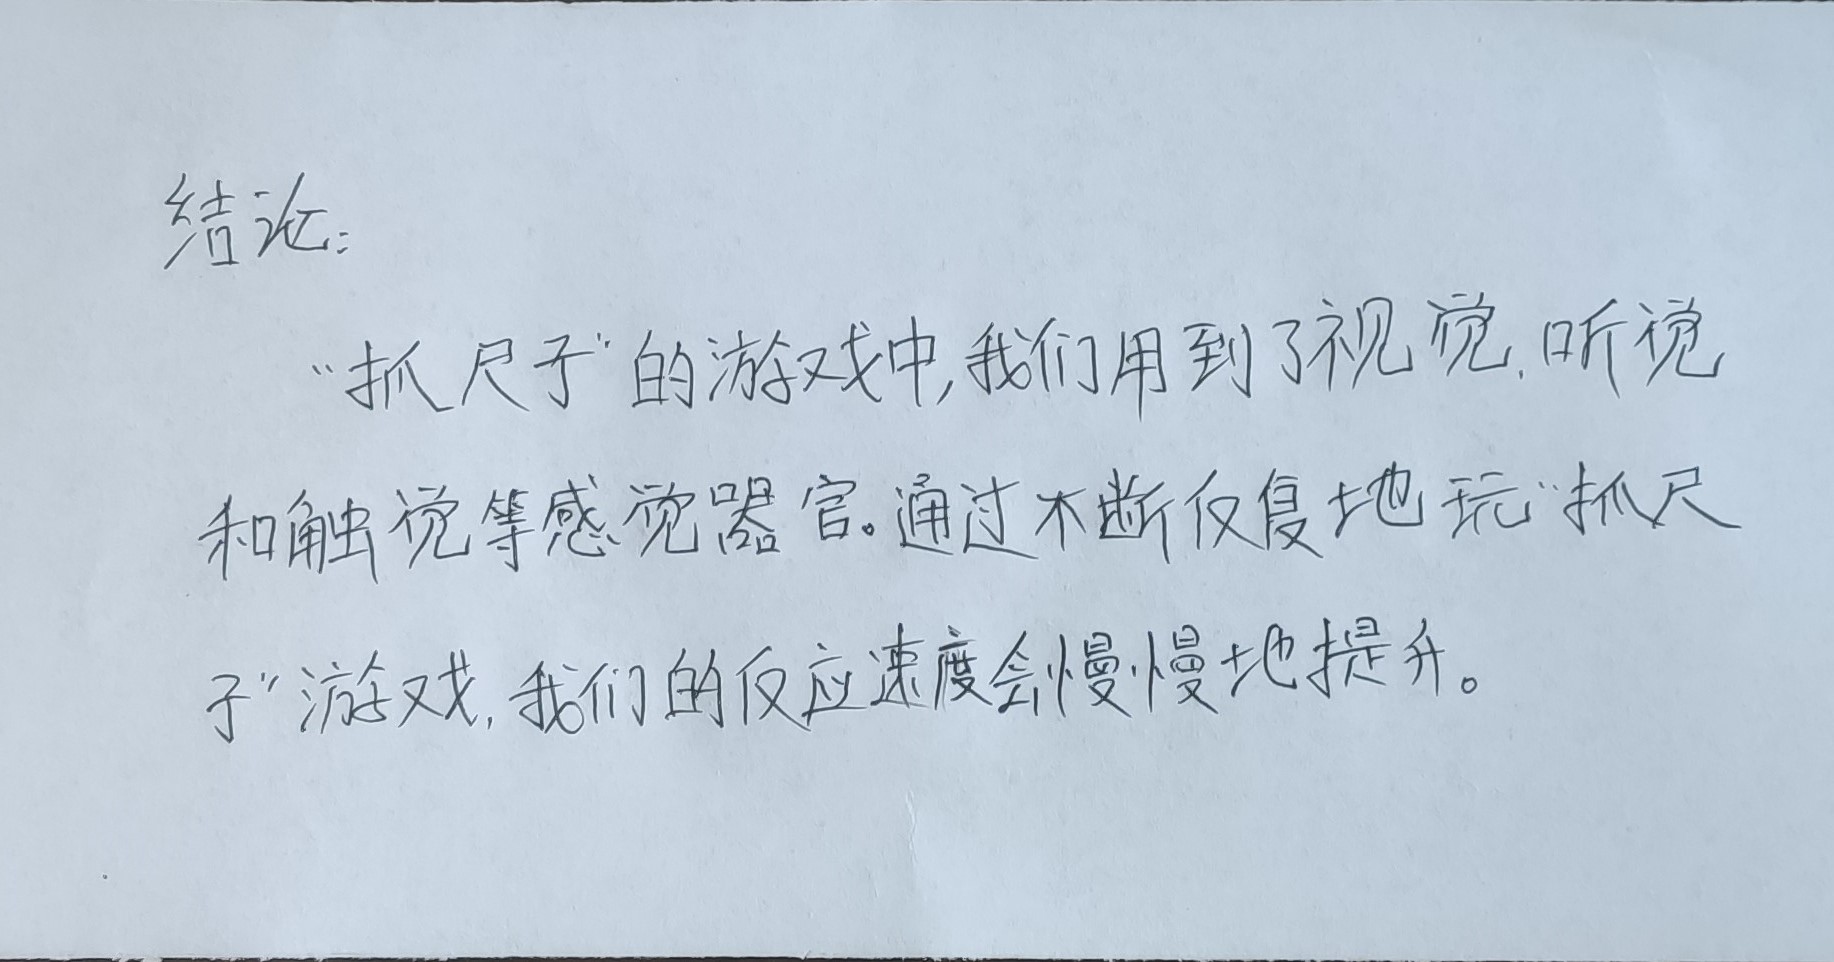 结论:
"抓尺子"的游戏中,我们用到了视觉、听觉
和触觉等感觉器官。通过不断反复地玩"抓尺
子"游戏,我们的反应速度会慢慢地提升。